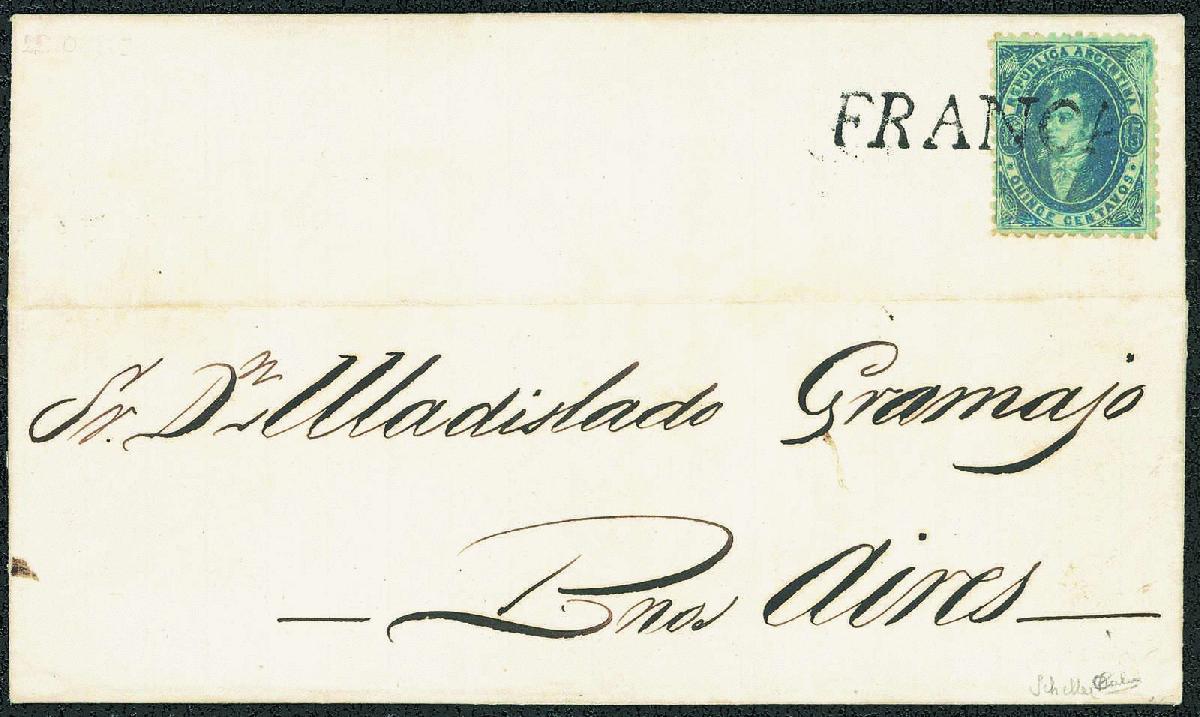 FRANCA
REPUBLICA ARGENTINA
15
QUINCE CENTAVOS
Sr. Dn Uladislado Gramajo
Bnos Aires